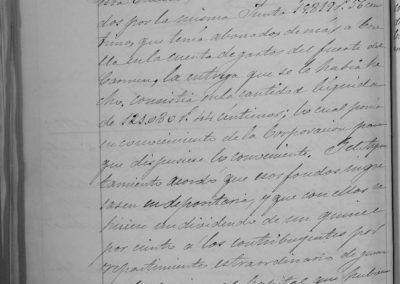 dos por la misma Junta 19.819 P. 56 cen
timos, que tenia abonados demás a
lla en la cuenta de gastos del puente del
Carmen, la entrega que se le habia he
cho, consistia en la cantidad liquida
de 123.080 P. céntimos; lo cual ponia
en conocimiento de la Corporacion para
que dispusiese lo conveniente. I el Ayun
tamiento acordó que esos fondos ingre
sasen en depositaria, y que con ellos se
hiciese un dividendo de un quince
por ciento a los contribuyentes por
repartimiento extraordinario de
capital que hubieran